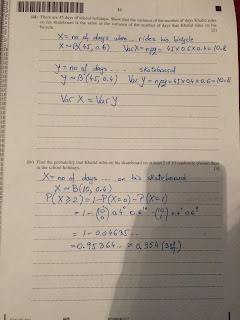 11
(iii) There are 45 days of school holidays. Show that the variance of the number of days Khalid rides
on his skateboard is the same as the variance of the number of days that Khalid rides on his
bicycle. [2]
X = no of days when ... rides his bicycle
X ~ B(45, 0.6) Var X = npq = 45 x 0.6 x 0.4 = 10.8
Y = no of days .... skateboard
Y ~ B(45, 0.4) Var Y = npq = 45 x 0.4 x 0.6 = 10.8
Var X = Var Y
(iv) Find the probability that Khalid rides on his skateboard on at least 2 of 10 randomly chosen days
in the school holidays. [3]
X = no of days ... on his skateboard
X ~ B(10, 0.4)
P(X ≥ 2) = 1 - P(X=0) - P(X=1)
= 1 - (10 0) 0.4⁰ 0.6¹⁰ - (10 1) 0.4¹ 0.6⁹
= 1 - 0.04635...
= 0.95364.. = 0.954 (3sf)